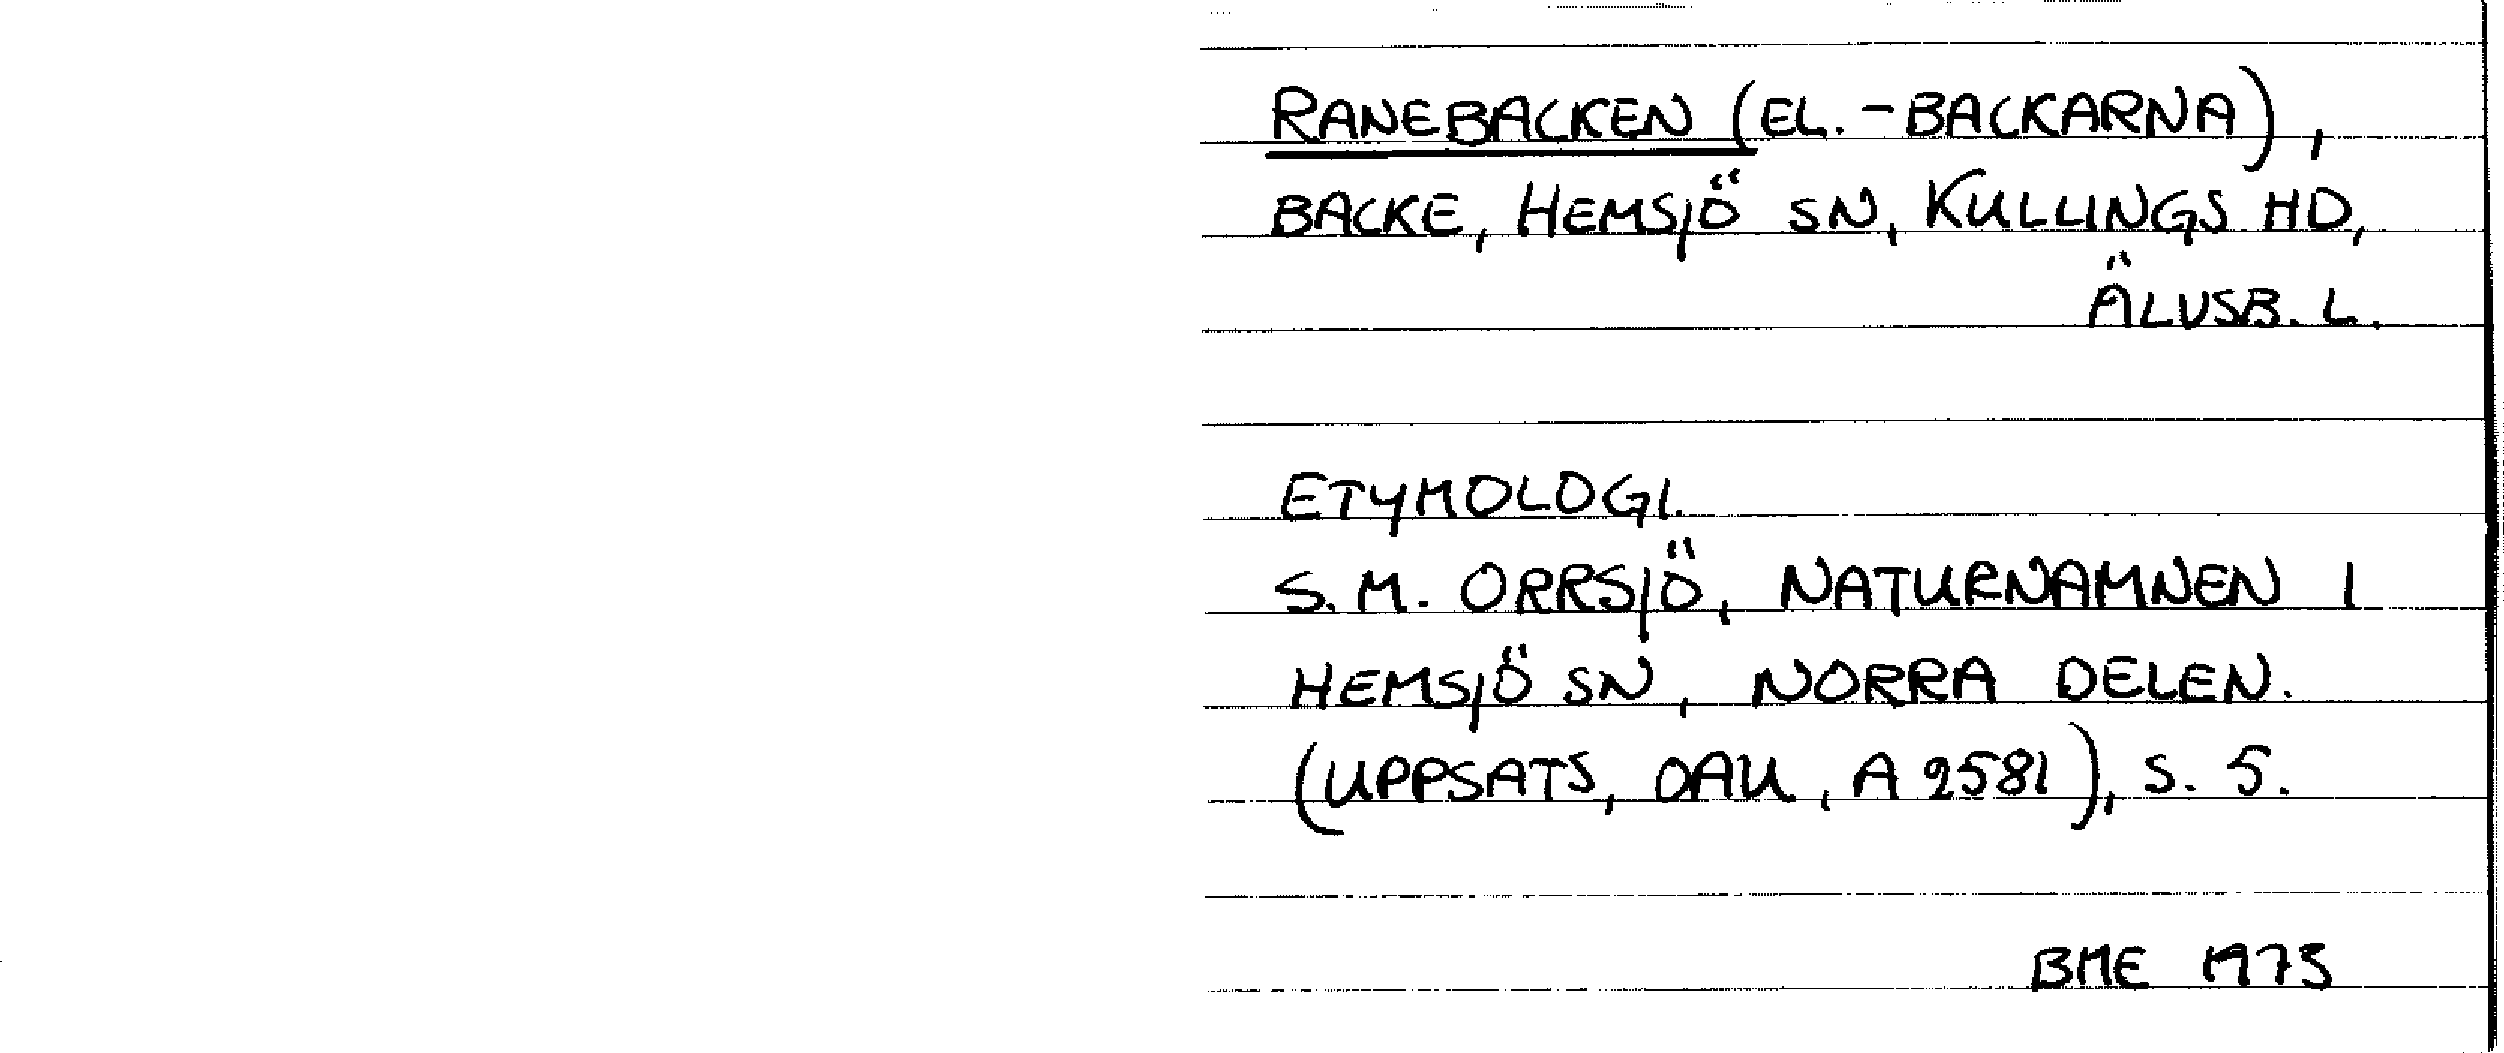 RANEBACKEN (EL. -BACKARNA),
BACKE, HEMSJÖ SN, KULLINGS HD,
ÄLVSB. L.
ETYMOLOGI.
S. M. ORRSJÖ, NATURNAMNEN I
HEMSJÖ SN, NORRA DELEN.
(UPPSATS, OAU, A 2581), S. 5.
BME 1973